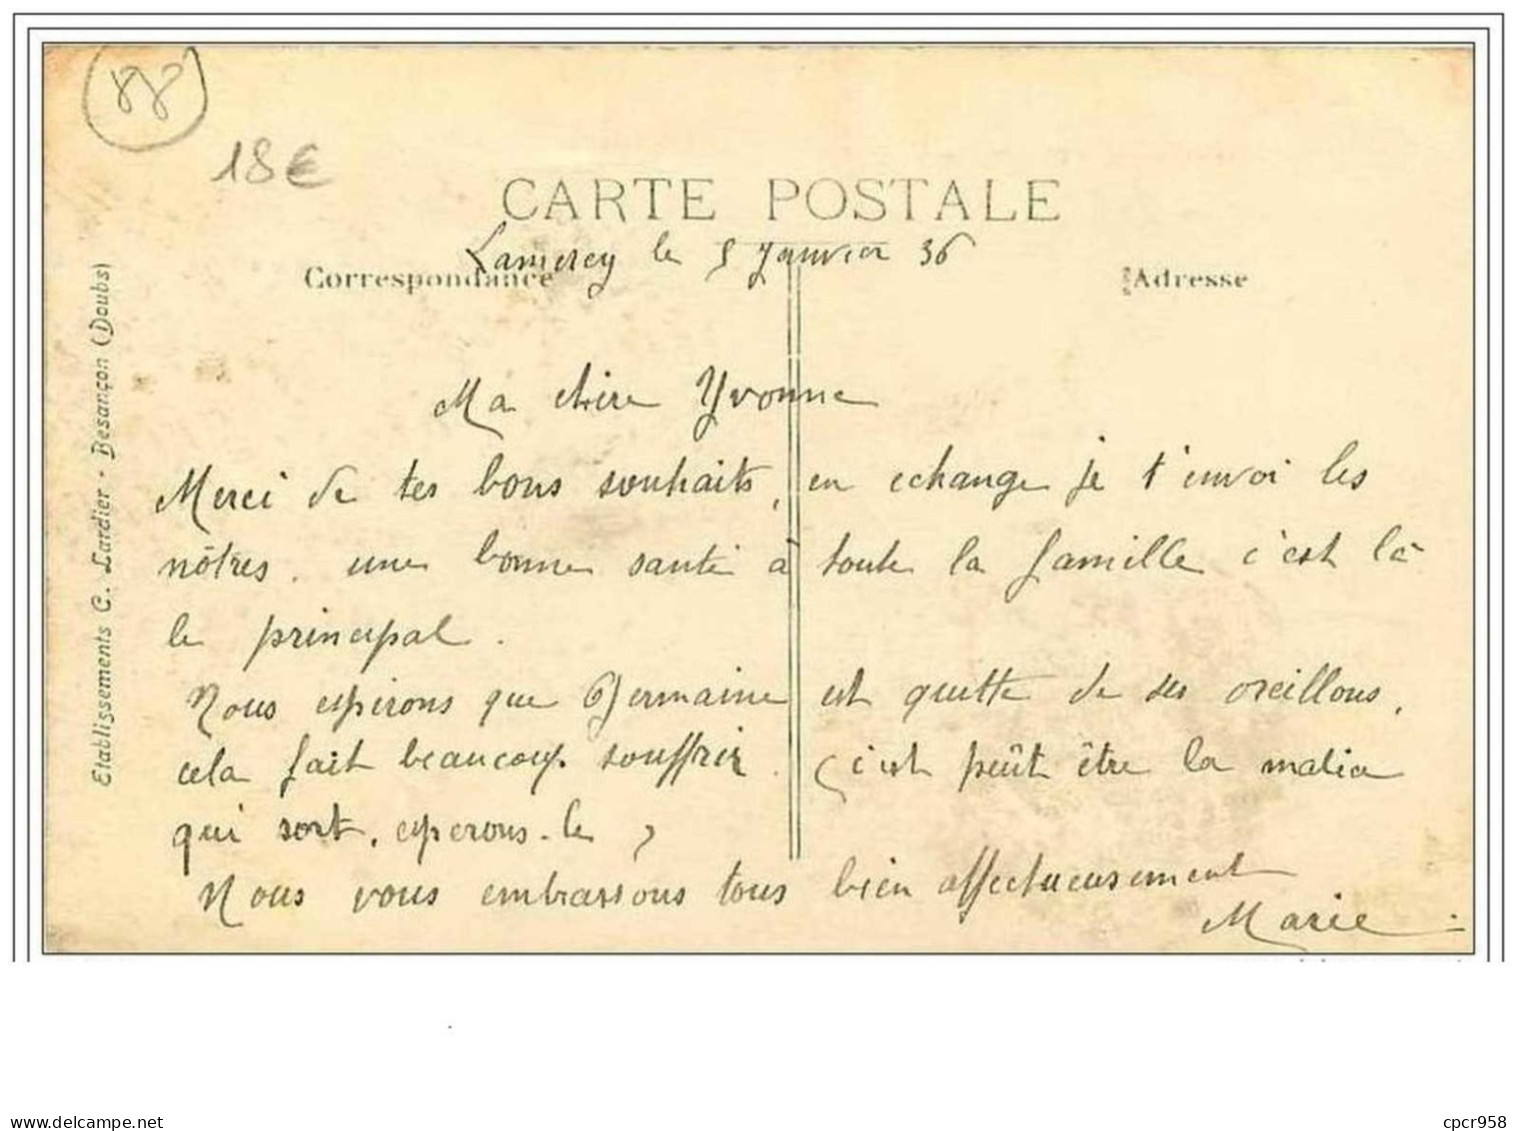 88
18€
CARTE POSTALE
Lamerey le 5 Janvier 36
Correspondance
Adresse
Etablissements C. Lardier - Besançon (Doubs)
Ma chère Yvonne
Merci de tes bons souhaits, en echange je t'envoi les
nôtres. une bonne santé à toute la famille c'est là
le principal.
Nous espérons que Germaine est quitte de ses oreillons,
cela fait beaucoup souffrir. c'est peût être la
qui sort, esperons-le,
Nous vous embrassons tous bien affectueusement
Marie
delcampe.net
cpcr958